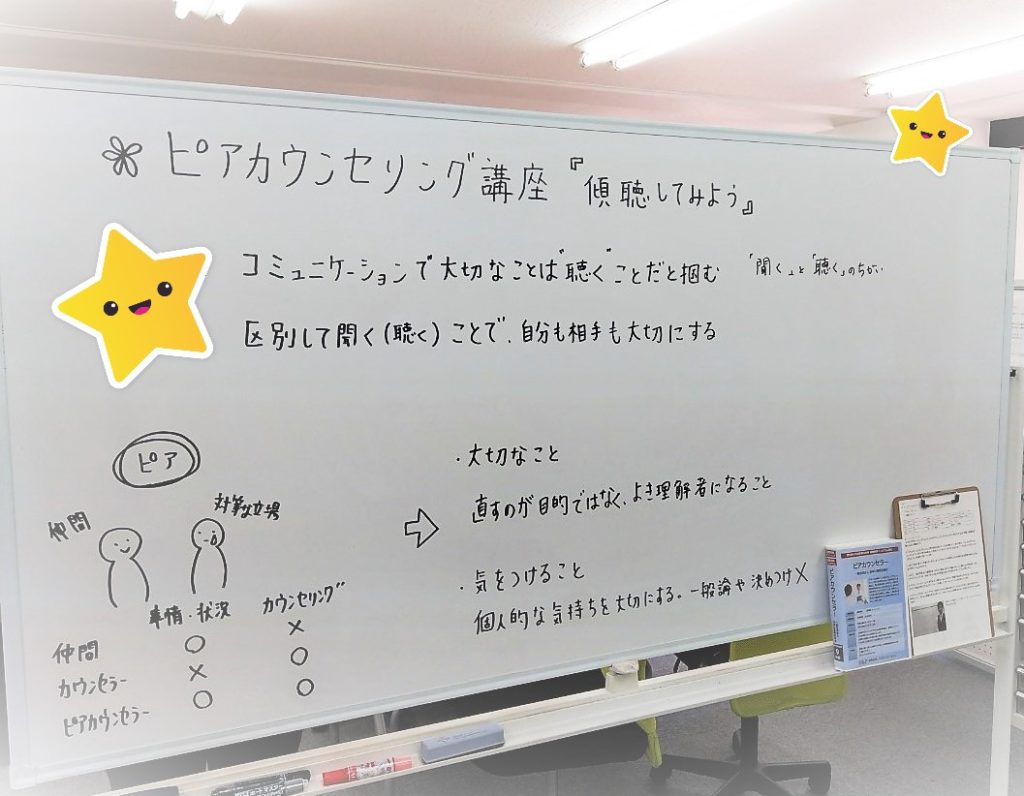 ピアカウンセリング講座『傾聴してみよう』
コミュニケーションで大切なことは"聴く"ことだと掴む
「聞く」と「聴く」のちがい
区別して聞く(聴く)ことで、自分も相手も大切にする
ピア
仲間
対等な立場
事情・状況 カウンセリング
仲間 ○ ×
カウンセラー × ○
ピアカウンセラー ○ ○
・大切なこと
直すのが目的ではなく、よき理解者になること
・気をつけること
個人的な気持ちを大切にする。一般論や決めつけ×
ピアカウンセラー
ピアカウンセラー